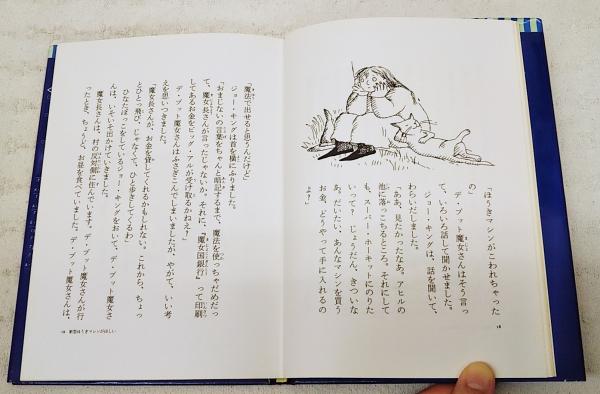 「ほうきマシンがこわれちゃった
の」
デ・ブット魔女さんはそう言っ
て、いろいろ話して聞かせました。
ジョー・キングは、話を聞いて、
わらいだしました。
「ああ、見たかったなあ。アヒルの
池に落っこちるところ。それにして
も、スーパー・ホーキットにのりた
いって？じょうだん、きついな
あ。だいたい、あんなマシンを買う
お金、どうやって手に入れるの
よ？」
18
「魔法で出せると思うんだけど」
ジョー・キングは首を横にふりました。
「おまじないの言葉をちゃんと暗記するまで、魔法を使っちゃだめだっ
て、魔女長さんが言ったじゃないか。それに、『魔女国銀行』って印刷
してあるお金をビッグ・アルが受け取るかねえ？」
デ・ブット魔女さんはふさぎこんでしまいましたが、やがて、いい考
えを思いつきました。
「魔女長さんが、お金を貸してくれるかもしれない。これから、ちょっ
とひとっ飛び、じゃなくて、ひと歩きしてくるわ」
ひなたぼっこをしているジョー・キングをおいて、デ・ブット魔女さ
んは、いそいそ出かけていきました。
魔女長さんは、村の反対側に住んでいます。デ・ブット魔女さんが行
ったとき、ちょうど、お昼を食べていました。デ・ブット魔女さんは、
19 新型ほうきマシンがほしい